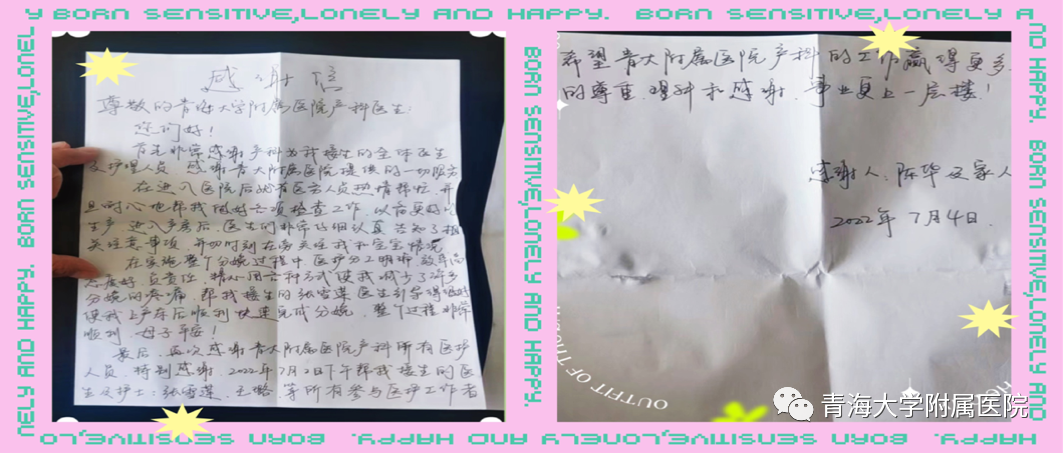 Y BORN SENSITIVE,LONELY AND HAPPY. BORN SENSITIVE,LONELY A
感谢信
尊敬的青海大学附属医院产科医生:
您们好!
首先非常感谢产科为我接生的全体医生
及护理人员 感谢青大附属医院提供的一切服务
在进入医院后就有医务人员热情帮忙 并
且耐心地帮我做好各项检查工作,以前更好的
生产 进入产房后,医生们非常仔细认真告知了相
关注意事项,并时时刻刻在旁关注我和宝宝情况
在实施整个分娩过程中 医护分工明确 效率高
态度好 负责任 精心用各种方式使我减少了许多
分娩的疼痛,帮我接生的张雪莲医生引导得很好
使我上产床后顺利快速完成分娩,整个过程非常
顺利,母子平安!
最后,再次感谢青大附属医院产科所有医护
人员 特别感谢 2022年7月2日下午帮我接生的医
生及护士:张雪莲、王璐、等所有参与医护工作者
希望青大附属医院产科的工作赢得更多
的尊重、理解和感谢、事业更上一层楼!
感谢人:陈华及家人
2022年7月4日.
OUTFIT OF THO
青海大学附属医院
BORN SENSITIVE,LONEL
NELY AND HAPPY.
BORN SENSITIVE,LONELY AND HAPPY.
ND HAPPY. BORN SENSITIVE,LONELY AND HAPPY.
HAPPY. BORN SENSITIVE,LONELY AND HAPPY. BORN SENSITIVE,LO